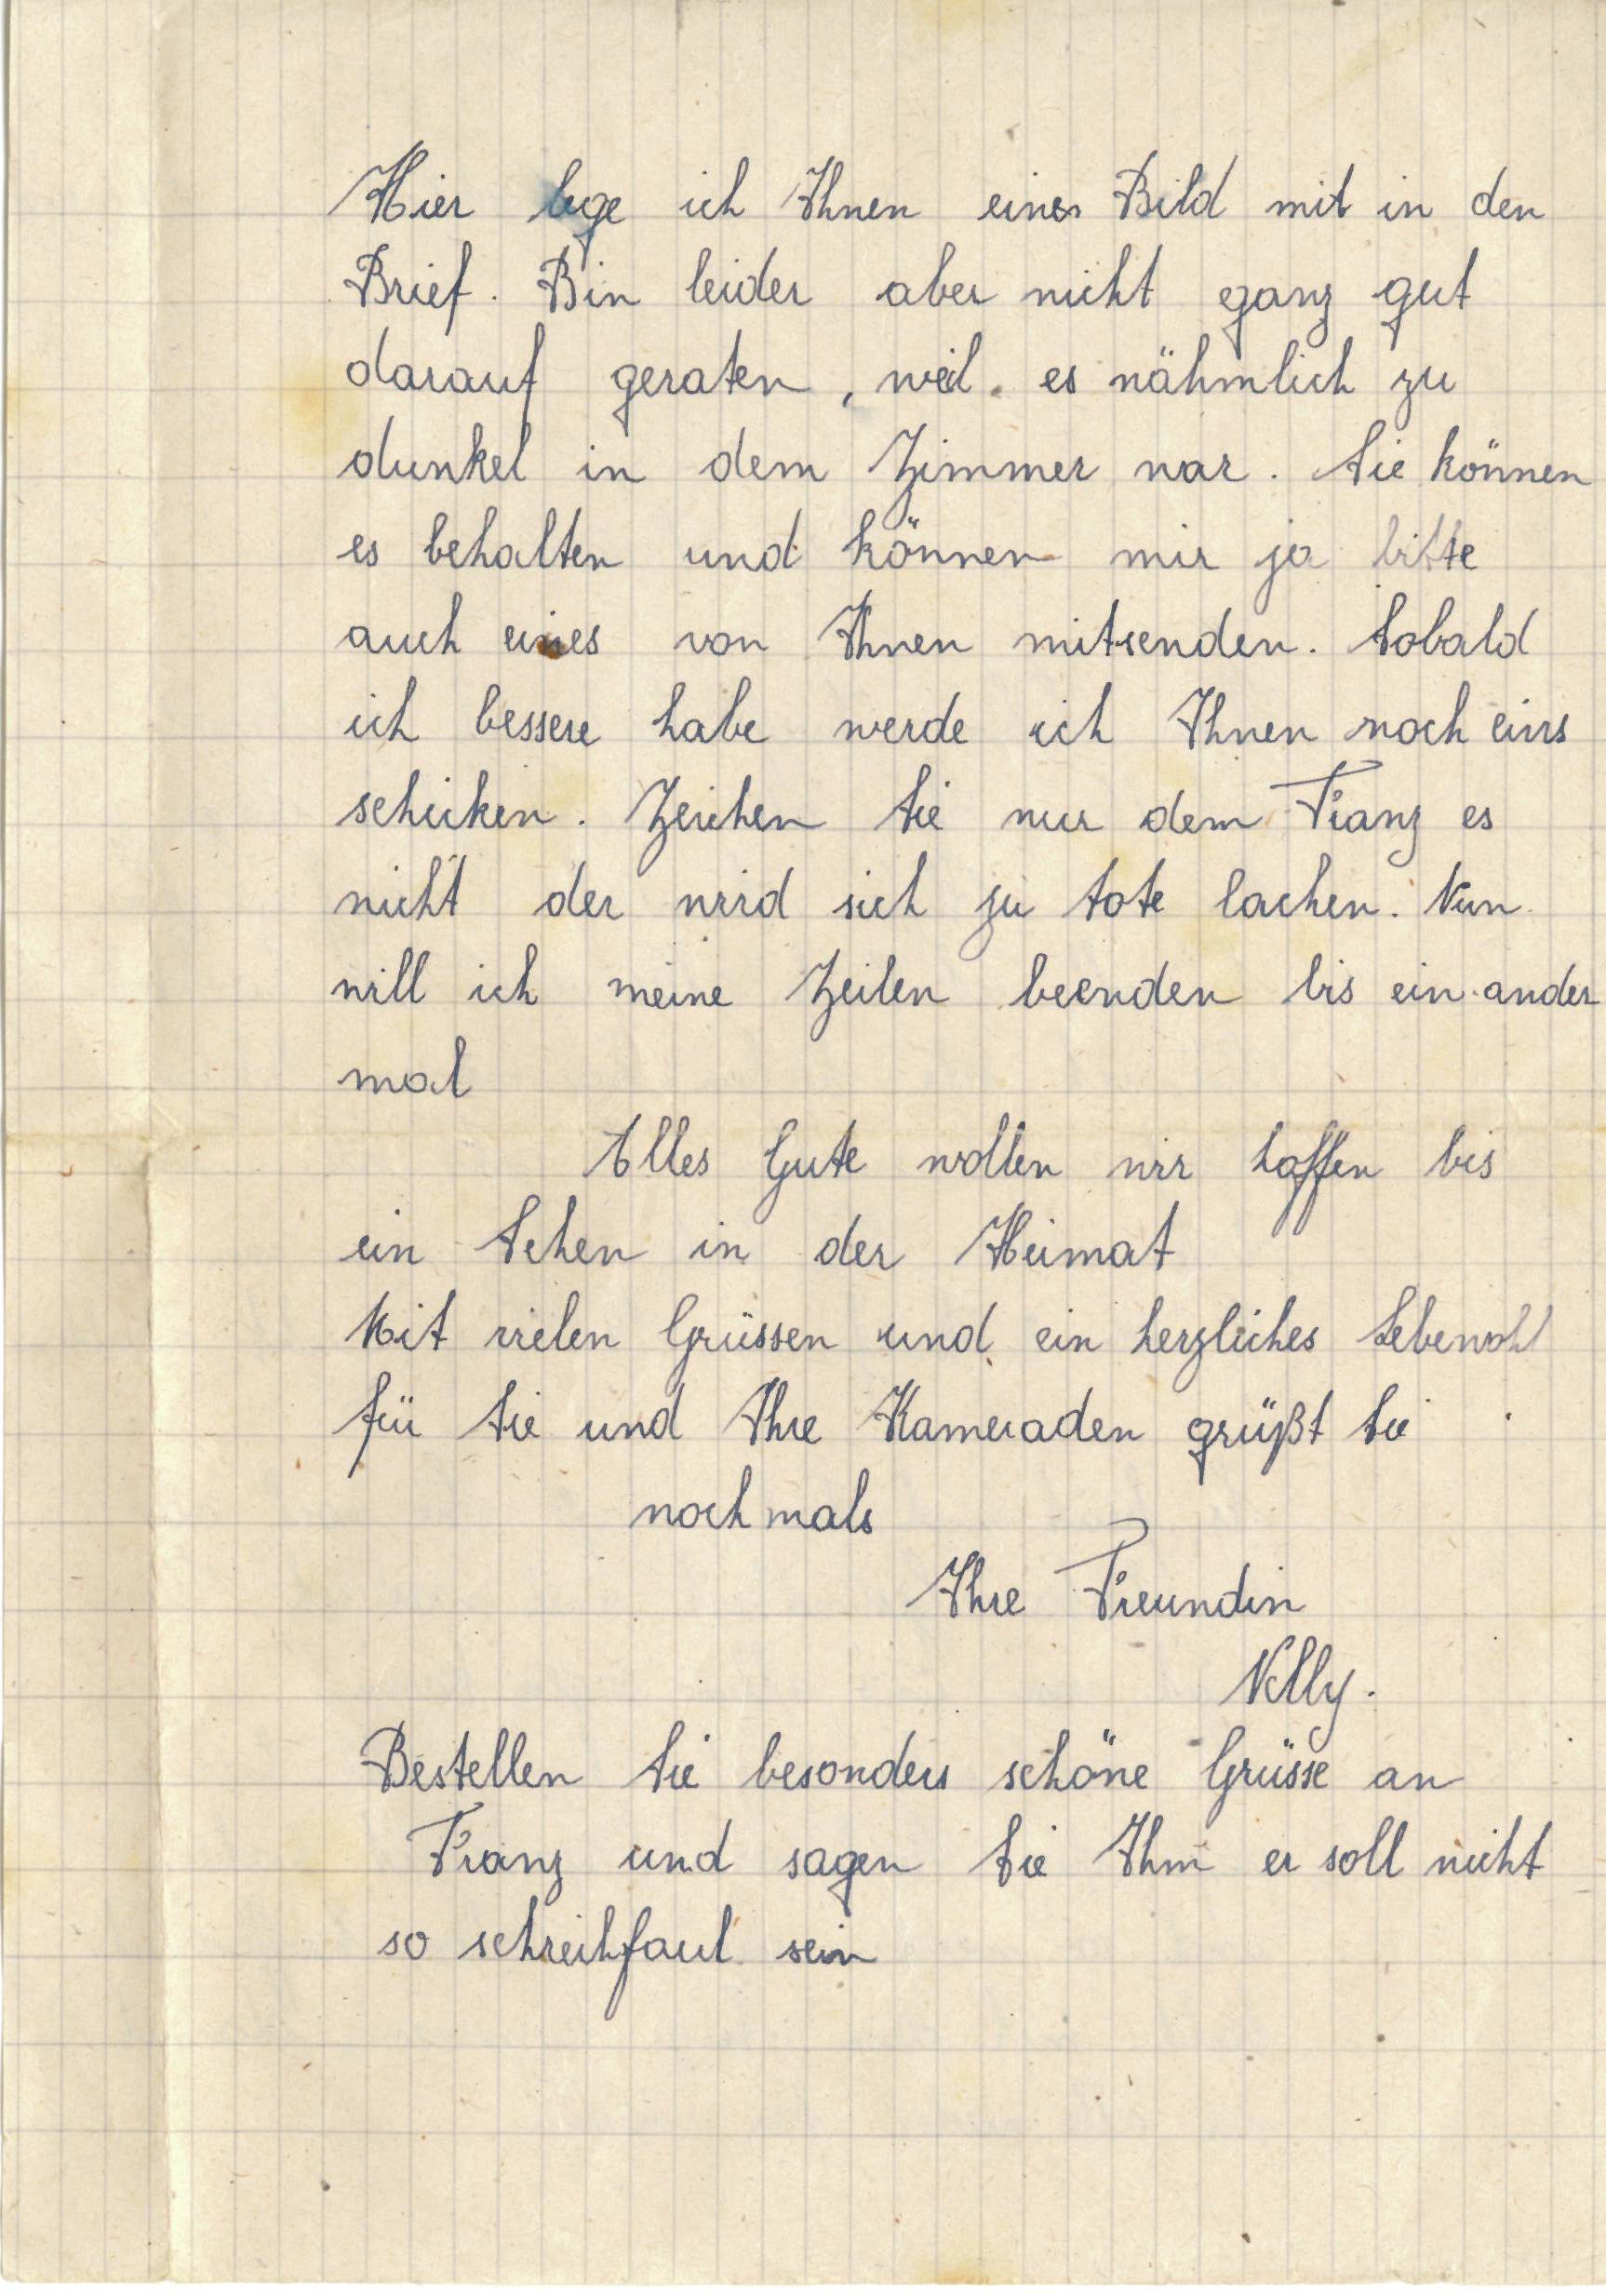 Hier lege ich Ihnen einen Bild mit in den
Brief. Bin leider aber nicht ganz gut
darauf geraten, weil es nähmlich zu
dunkel in dem Zimmer war. Sie können
es behalten und können mir ja bitte
auch eines von Ihnen mitsenden. Sobald
ich bessere habe werde ich Ihnen noch eins
schicken. Zeichen Sie nur dem Franz es
nicht der wird sich zu tote lachen. Nun
will ich meine Zeilen beenden bis ein ander
mal
Alles Gute wollen wir hoffen bis
ein Sehen in der Heimat
Mit vielen Grüssen und ein herzliches Lebewohl
für Sie und Ihre Kameraden grüßt Sie
noch mals
Ihre Freundin
Nelly.
Bestellen Sie besonders schöne Grüsse an
Franz und sagen Sie Ihm er soll nicht
so schreibfaul sein